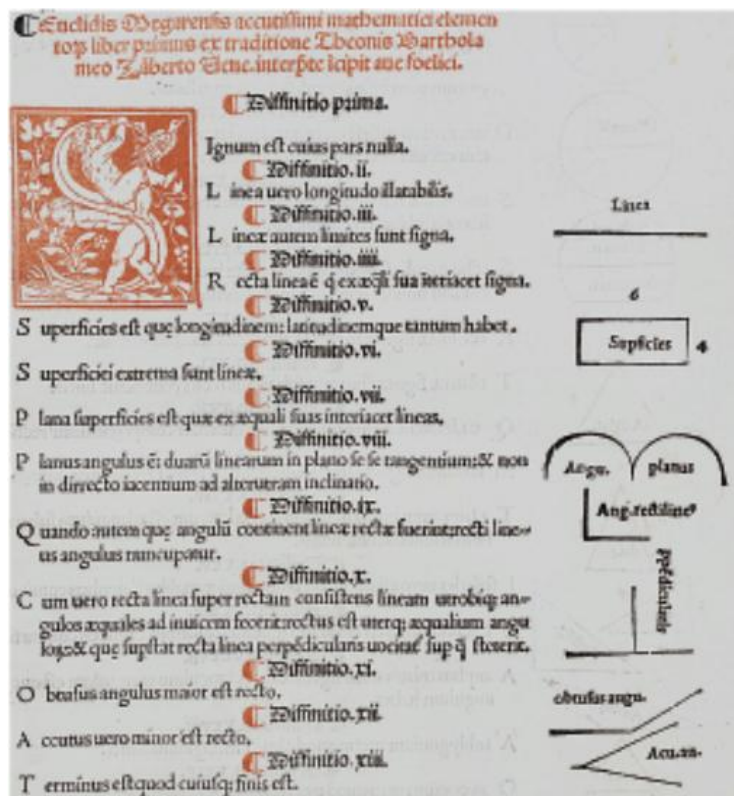 Euclidis Megarensis accutissimi mathematici elemen
torꝝ liber primus ex traditione Theonis Barthola
meo Zamberto Uene. interp̃te Icipit aue foelici.
Diffinitio prima.
Signum est cuius pars nulla.
Diffinitio.ii.
L inea uero longitudo illatabilis.
Diffinitio.iii.
L ineæ autem limites sunt signa.
Diffinitio.iiii.
R ecta linea ē q̄ ex æq̄li sua iteriacet signa.
Diffinitio.v.
S uperficies est quę longitudinem: latitudinemque tantum habet.
Diffinitio.vi.
S uperficiei extrema sunt lineæ.
Diffinitio.vii.
P lana superficies est quæ ex æquali suas interiacet lineas.
Diffinitio.viii.
P lanus angulus ē: duarū linearum in plano se se tangentium: & non
in dirrecto iacentium ad alterutram inclinatio.
Diffinitio.ix.
Q uando autem quę angulū continent lineæ rectæ fuerint: recti line-
us angulus nuncupatur.
Diffinitio.x.
C um uero recta linea super rectam consistens lineam utrobiq; an-
gulos æquales ad inuicem fecerit: rectus est uterq; æqualium angu
loꝝ: & quę supstat recta linea perpēdicularis uocitat̃ sup q̄ steterit.
Diffinitio.xi.
O btusus angulus maior est recto.
Diffinitio.xii.
A ccutus uero minor est recto.
Diffinitio.xiii.
T erminus est quod cuiusq; finis est.
Linea
6
Supficies 4
Angu. planus
Ang. rectiline⁹
ppēdicularis
obtusus angu.
Acu. an.